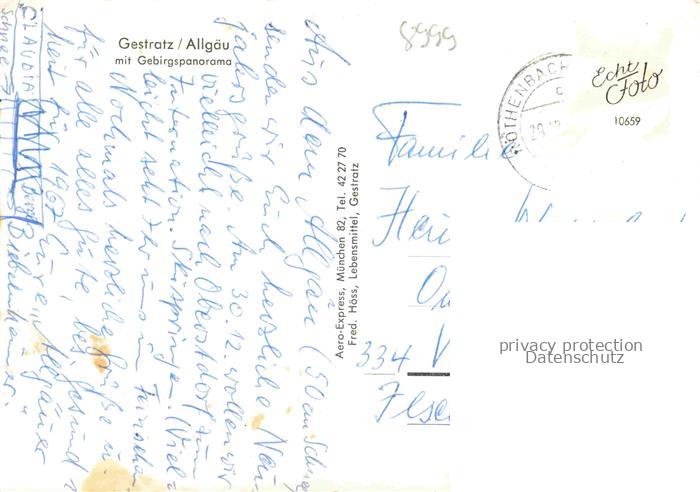 Gestratz / Allgäu
mit Gebirgspanorama
8999
Aus dem Allgäu (50 cm Schnee)
senden wir Euch herzliche Neu-
jahrsgrüße. Am 30.12. wollen wir
vielleicht nach Oberstdorf zum
Internation. Skispringen. (Viel-
leicht seht Ihr uns im Fernsehen
Nochmals herzliche Grüße u.
für alle alles Gute, bes. Gesund-
heit für 1967 Eure "Allgäuer
Bickenhauser"
CLAUDIA
Schnee
Berg
Aero-Express, München 82, Tel. 42 27 70
Fred. Höss, Lebensmittel, Gestratz
RÖTHENBACH
Echt
Foto
10659
Familie
334
privacy protection
Datenschutz